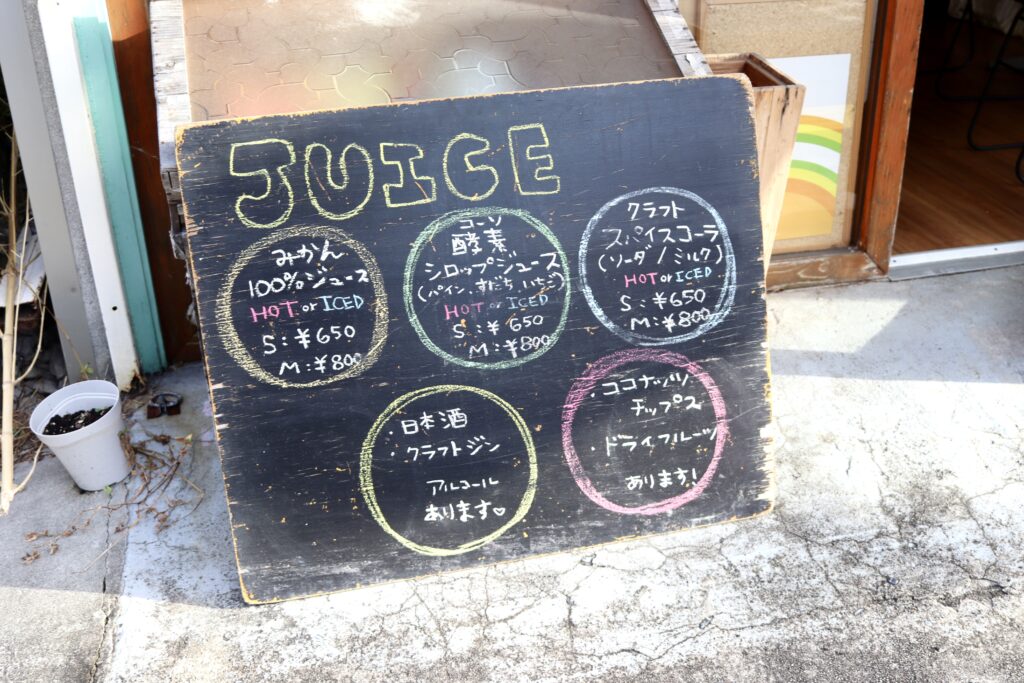 JUICE
みかん
100%ジュース
HOT or ICED
S:¥650
M:¥800
コーソ
酵素
シロップジュース
(パイン、すだち、いちご)
HOT or ICED
S:¥650
M:¥800
クラフト
スパイスコーラ
(ソーダ/ミルク)
HOT or ICED
S:¥650
M:¥800
・日本酒
・クラフトジン
アルコール
あります♡
・ココナッツ
チップス
・ドライフルーツ
あります!